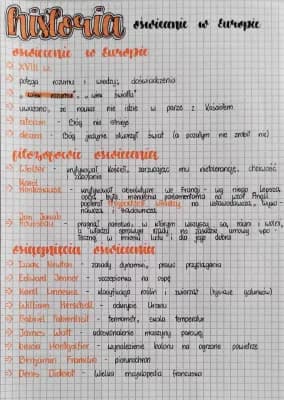 historia oświecenie w Europie
oświecenie w Europie
→ XVIII w.
→ potęga rozumu i wiedzy, doświadczenia
→ "wiek rozumu", "wiek światła"
→ uważano, że nauka nie idzie w parze z Kościołem
→ ateizm - Bóg nie istnieje
→ deizm - Bóg jedynie stworzył świat (a poza tym nie zrobił nic)
filozofowie oświecenia
→ Wolter - krytykował Kościół, zarzucając mu nietolerancję, chciwość i zacofanie
→ Karol
Monteskiusz - krytykował absolutyzm we Francji - wg niego lepsza
była monarchia parlamentarna na wzór Anglii
podział władzy: ustawodawcza, wykonawcza
i sądownicza
→ Jan Jakub
Rousseau - pragnął państwa, w którym wszyscy są równi i wolni,
a władza sprawuje rządy na zasadzie umowy
społecznej, w imieniu ludu i dla jego dobra
osiągnięcia oświecenia
→ Izaak Newton - zasady dynamiki, prawo przyciągania
→ Edward Jenner - szczepionka na ospę
→ Karol Linneusz - klasyfikacja roślin i zwierząt (nazwy gatunków)
→ William Herschell - odkrycie Urana
→ Gabriel Fahrenheit - termometr, skala temperatur
→ James Watt - udoskonalenie maszyny parowej
→ bracia Montgolfier - wynalezienie balonu na ogrzane powietrze
→ Benjamin Franklin - piorunochron
→ Denis Diderot - Wielka encyklopedia francuska